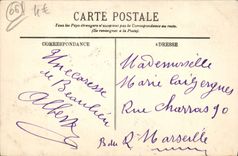 66
4€
CARTE POSTALE
Tous les Pays étrangers n'acceptent pas la Correspondance au recto.
(Se renseigner à la Poste)
CORRESPONDANCE
ADRESSE
Une caresse
de Beaulieu
Albert
Mademoiselle
Marie
Rue Charras 90
B. du R. Marseille